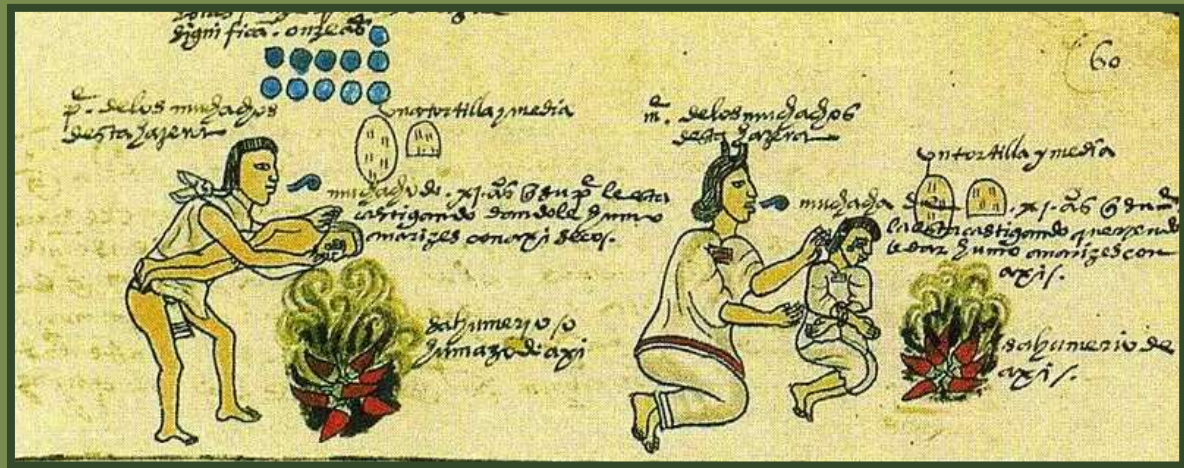 significa. onze años
60
pe. de los muchachos
desta hazera
una tortilla y media
muchacho de .xi. años q su pe le esta
castigando dandole humo
a narizes con axi secos.
sahumerio o
humazo de axi
me. de los muchachos
desta hazera
una tortilla y media
muchacha de .xi. años q su me
la esta castigando queriendo
le dar humo a narizes con
axis.
sahumerio de
axis.